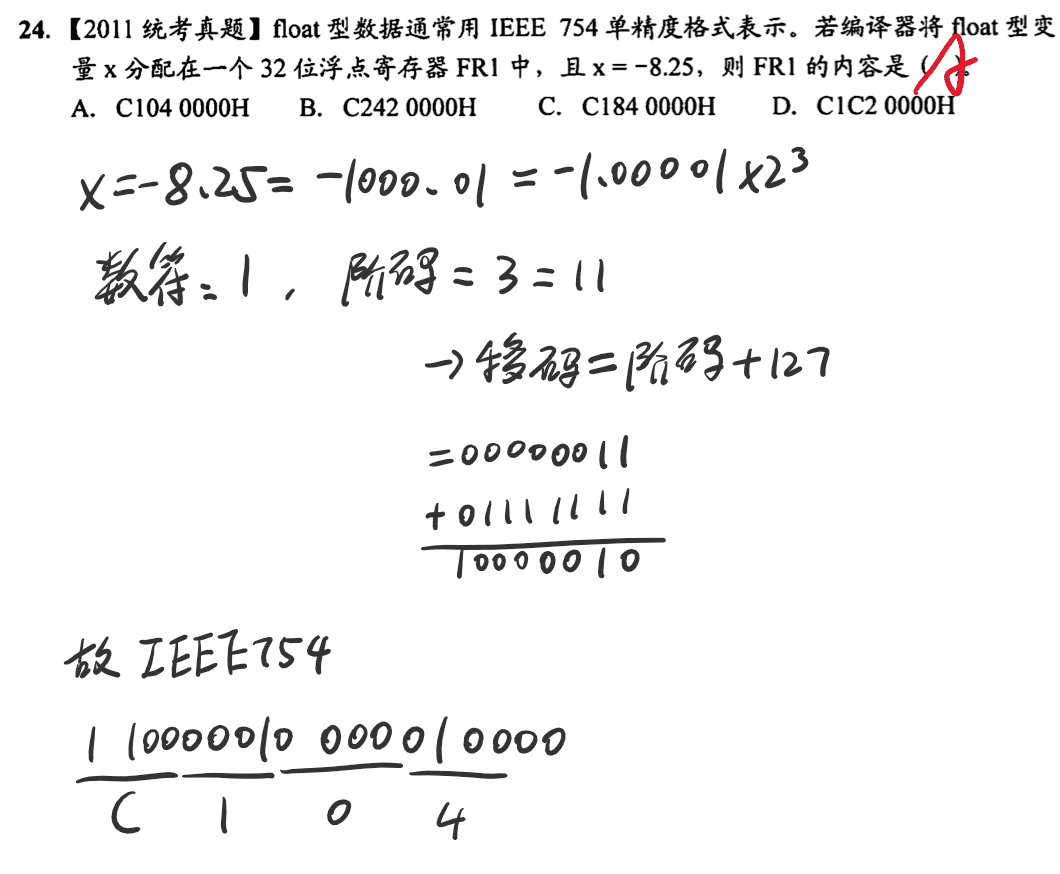 24.【2011 统考真题】float 型数据通常用 IEEE 754 单精度格式表示。若编译器将 float 型变
量 x 分配在一个 32 位浮点寄存器 FR1 中，且 x = −8.25，则 FR1 的内容是（A）。
A. C104 0000H B. C242 0000H C. C184 0000H D. C1C2 0000H
x=-8.25= -1000.01 = -1.00001×2³
数符=1, 阶码=3=11
→移码=阶码+127
=00000011
+01111111
10000010
故 IEEE754
1 10000010 000010000
C 1 0 4